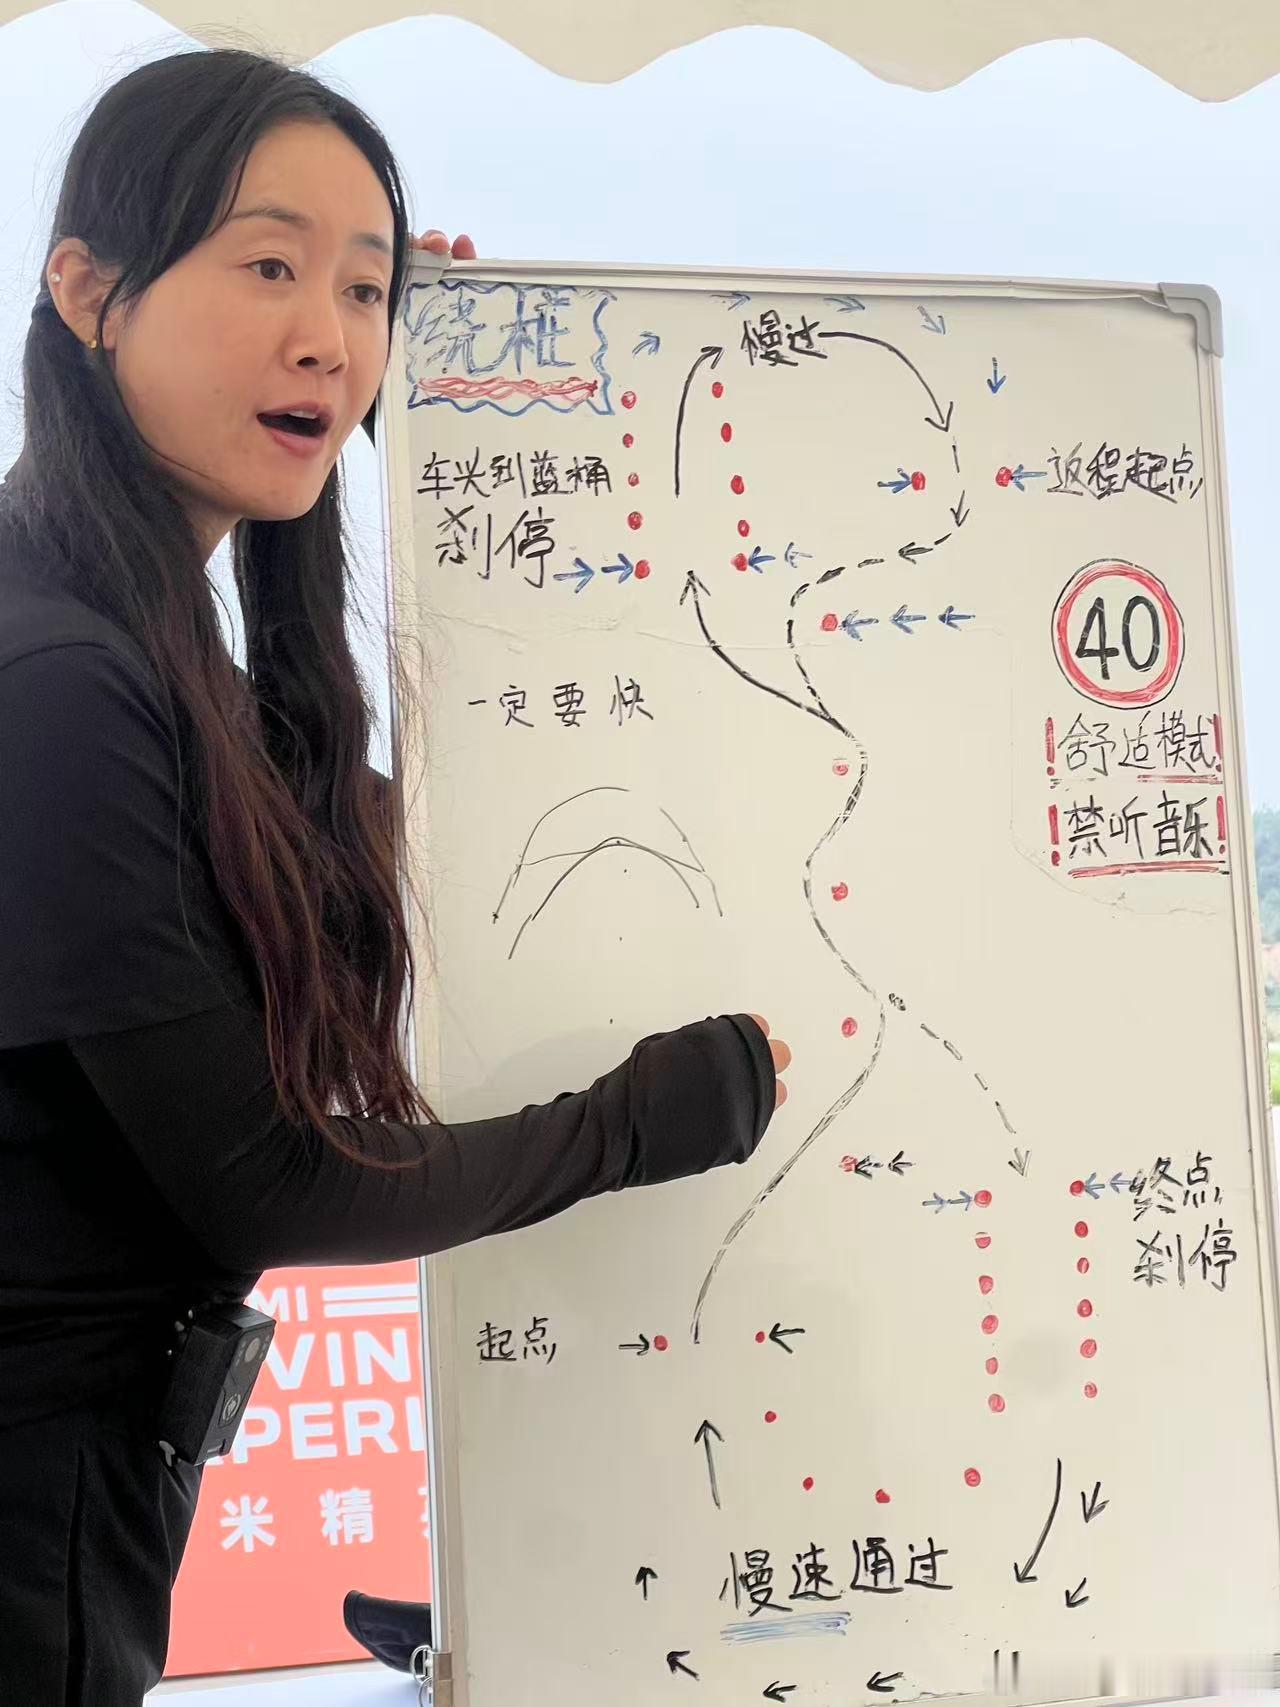 绕桩
慢过
车头到蓝桶
刹停
返程起点
40
一定要快
!舒适模式!
!禁听音乐!
终点
刹停
起点
慢速通过
MI
VIN
PERI
米精